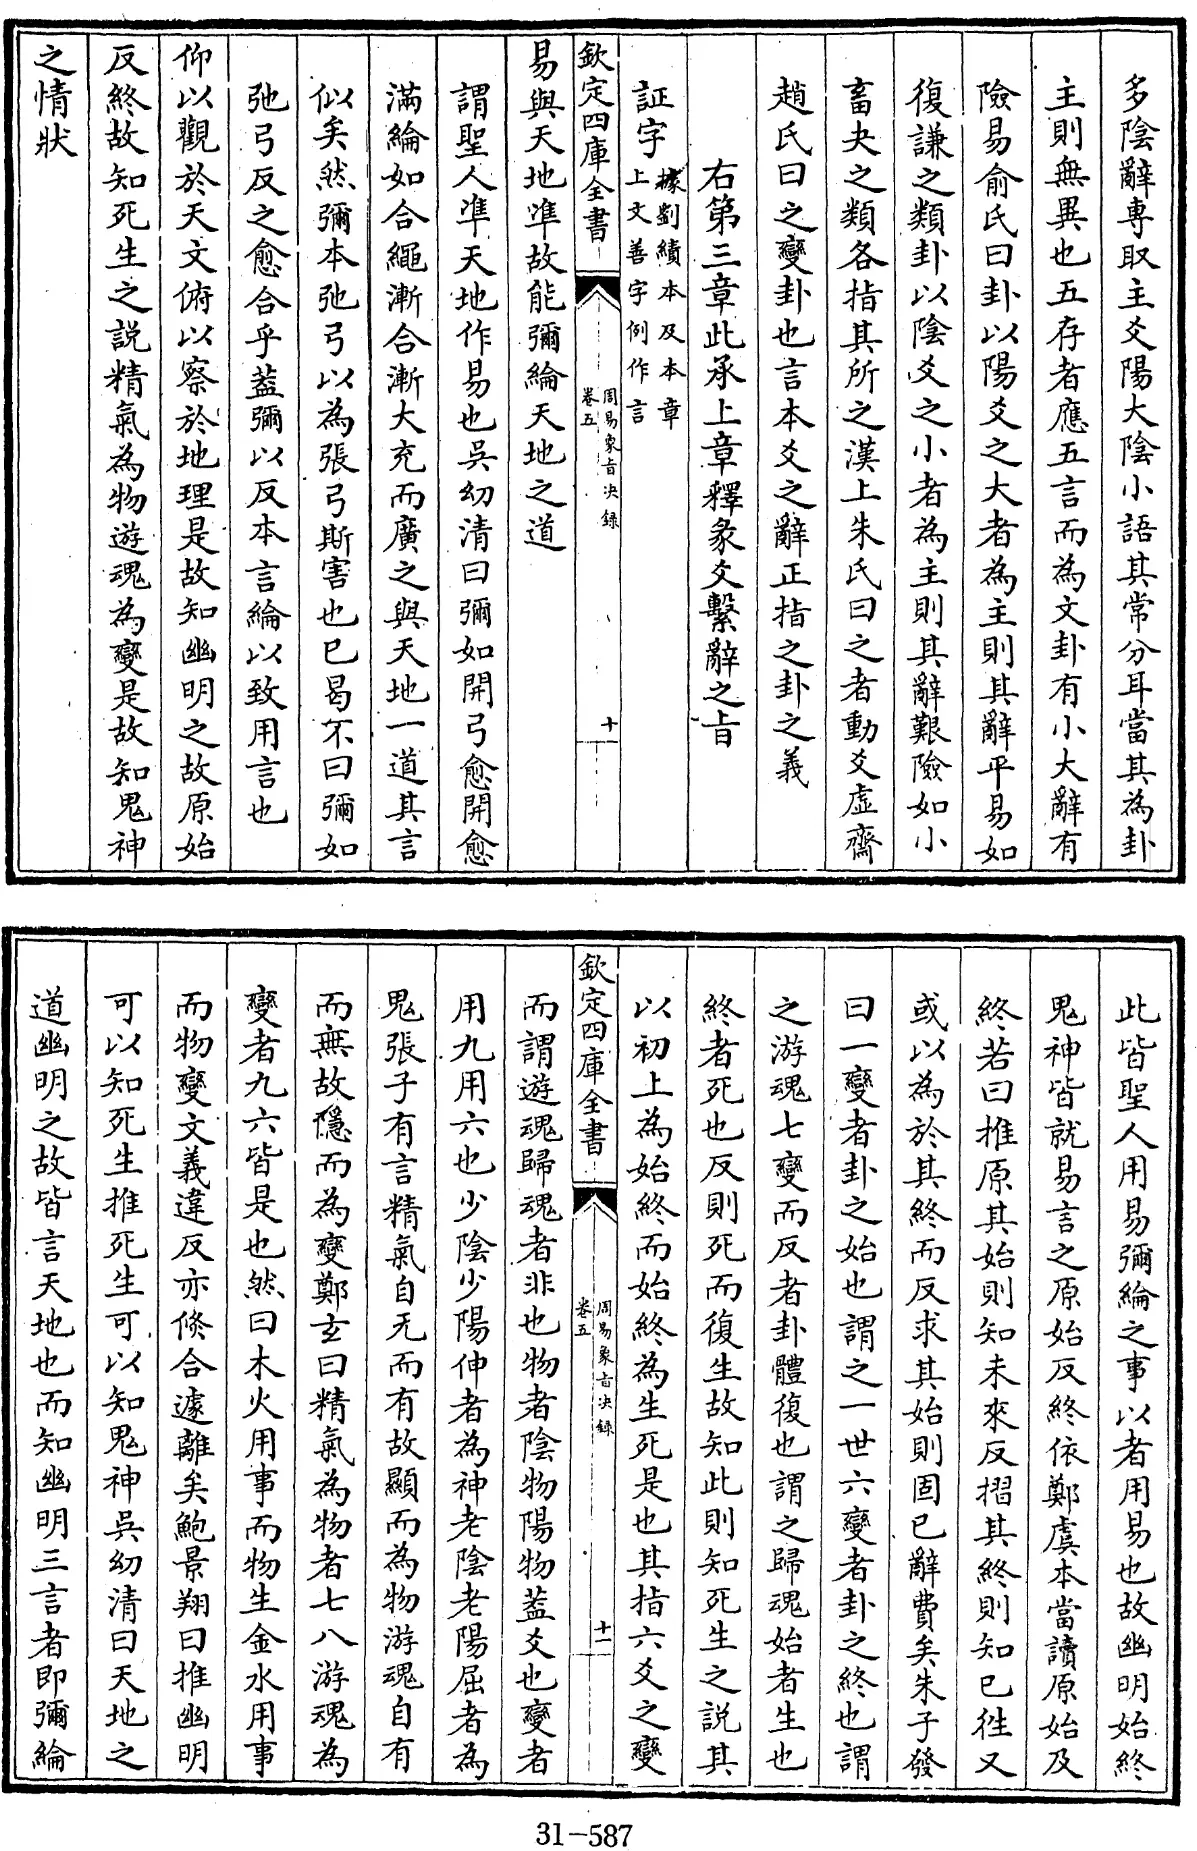 多陰辭專取主爻陽大陰小語其常分耳當其為卦
主則無異也五存者應五言而為文卦有小大辭有
險易俞氏曰卦以陽爻之大者為主則其辭平易如
復謙之類卦以陰爻之小者為主則其辭艱險如小
畜夬之類各指其所之漢上朱氏曰之者動爻虛齋
趙氏曰之變卦也言本爻之辭正指之卦之義
右第三章此承上章釋彖爻繫辭之旨
証字據劉績本及本章
上文善字例作言
欽定四庫全書
周易象旨决錄
卷五
十
易與天地準故能彌綸天地之道
謂聖人準天地作易也吳幼清曰彌如開弓愈開愈
滿綸如合繩漸合漸大充而廣之與天地一道其言
似矣然彌本弛弓以為張弓斯害也巳曷不曰彌如
弛弓反之愈合乎葢彌以反本言綸以致用言也
仰以觀於天文俯以察於地理是故知幽明之故原始
反終故知死生之說精氣為物遊魂為變是故知鬼神
之情狀
此皆聖人用易彌綸之事以者用易也故幽明始終
鬼神皆就易言之原始反終依鄭虞本當讀原始及
終若曰推原其始則知未來反摺其終則知巳徃又
或以為於其終而反求其始則固巳辭費矣朱子發
曰一變者卦之始也謂之一世六變者卦之終也謂
之游魂七變而反者卦體復也謂之歸魂始者生也
終者死也反則死而復生故知此則知死生之說其
以初上為始終而始終為生死是也其指六爻之變
欽定四庫全書
周易象旨决錄
卷五
十一
而謂遊魂歸魂者非也物者陰物陽物葢爻也變者
用九用六也少陰少陽伸者為神老陰老陽屈者為
鬼張子有言精氣自无而有故顯而為物游魂自有
而無故隱而為變鄭玄曰精氣為物者七八游魂為
變者九六皆是也然曰木火用事而物生金水用事
而物變文義違反亦倐合遽離矣鮑景翔曰推幽明
可以知死生推死生可以知鬼神吳幼清曰天地之
道幽明之故皆言天地也而知幽明三言者即彌綸
31-587